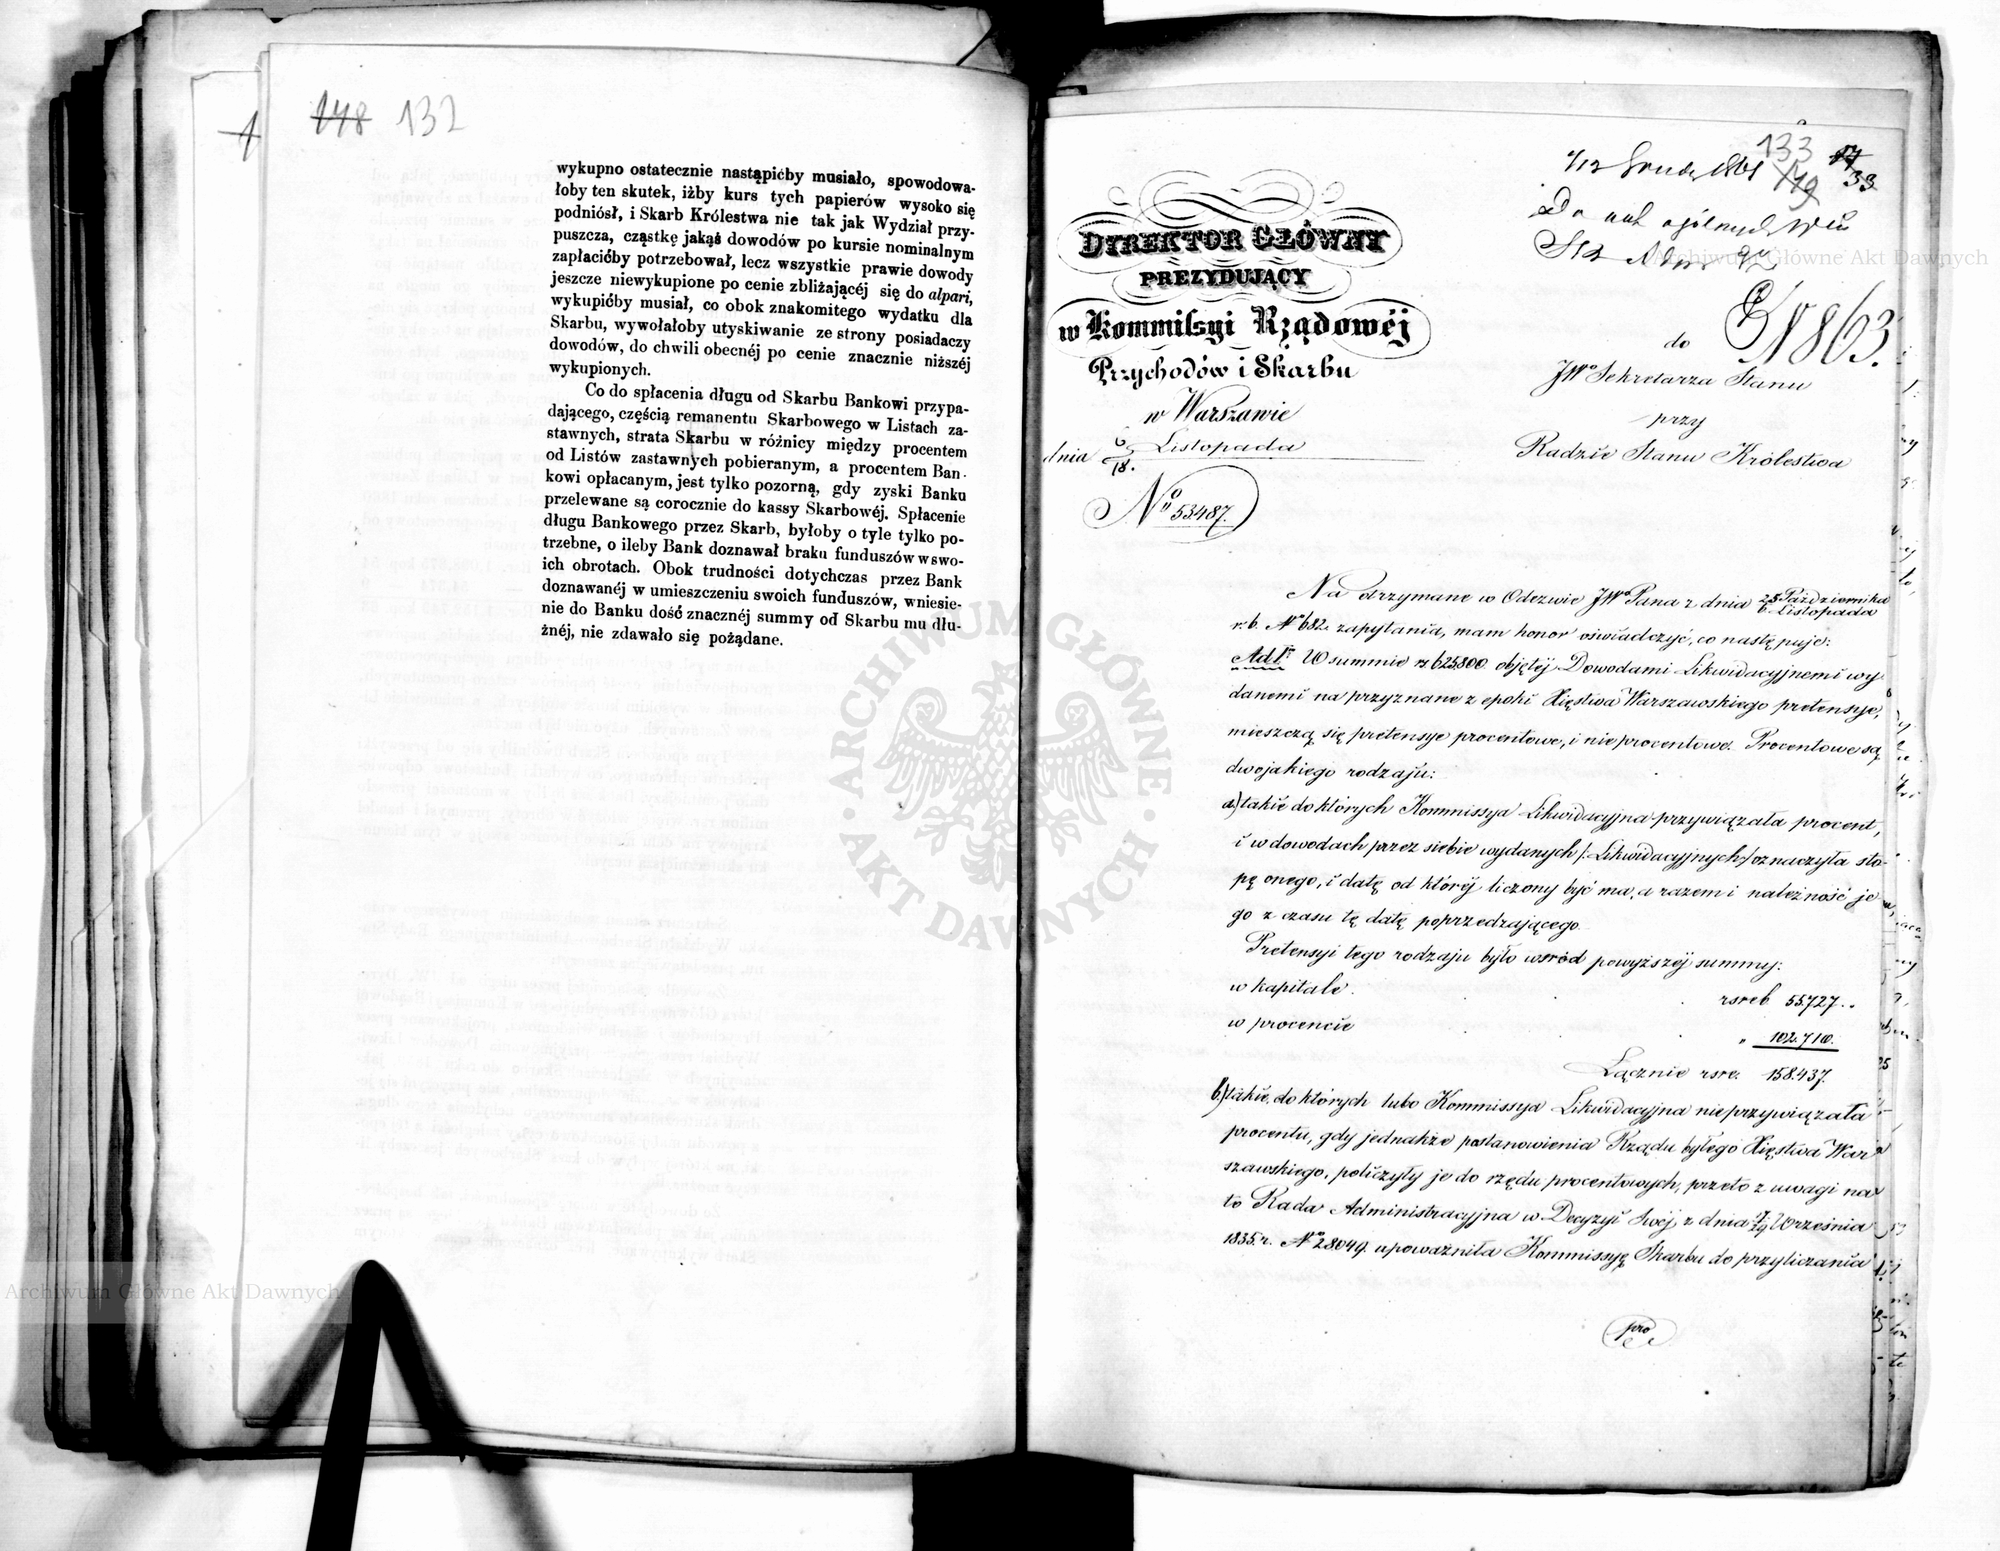 148 132
wykupno ostatecznie nastąpićby musiało, spowodowa-
łoby ten skutek, iżby kurs tych papierów wysoko się
podniósł, i Skarb Królestwa nie tak jak Wydział przy-
puszcza, cząstkę jakąś dowodów po kursie nominalnym
zapłacićby potrzebował, lecz wszystkie prawie dowody
jeszcze niewykupione po cenie zbliżającéj się do alpari,
wykupićby musiał, co obok znakomitego wydatku dla
Skarbu, wywołałoby utyskiwanie ze strony posiadaczy
dowodów, do chwili obecnéj po cenie znacznie niższéj
wykupionych.
Co do spłacenia długu od Skarbu Bankowi przypa-
dającego, częścią remanentu Skarbowego w Listach za-
stawnych, strata Skarbu w różnicy między procentem
od Listów zastawnych pobieranym, a procentem Ban-
kowi opłacanym, jest tylko pozorną, gdy zyski Banku
przelewane są corocznie do kassy Skarbowéj. Spłacenie
długu Bankowego przez Skarb, byłoby o tyle tylko po-
trzebne, o ileby Bank doznawał braku funduszów w swo-
ich obrotach. Obok trudności dotychczas przez Bank
doznawanéj w umieszczeniu swoich funduszów, wniesie-
nie do Banku dość znacznéj summy od Skarbu mu dłu-
żnéj, nie zdawało się pożądane.
133
149
33
1861
Do akt ogólnych
N 863.
DYREKTOR GŁÓWNY
PREZYDUJĄCY
w Kommissyi Rządowéj
Przychodów i Skarbu
w Warszawie
dnia 6/18. Listopada
No 53487.
do
JWo Sekretarza Stanu
przy
Radzie Stanu Królestwa
Na otrzymane w Odezwie JWo Pana z dnia 25 Października / 6 Listopada
r. b. No 682. zapytania, mam honor oświadczyć, co następuje:
Ad 1o W summie rs 625,800. objętéj Dowodami Likwidacyjnemi wy
danemi na przyznane z epoki Xięstwa Warszawskiego pretensye,
mieszczą się pretensye procentowe, i nieprocentowe. Procentowe są
dwojakiego rodzaju:
a.) takie do których Kommissya Likwidacyjna przywiązała procent,
i w dowodach przez siebie wydanych /: Likwidacyjnych :/ oznaczyła sto-
pę onego, i datę od któréj liczony być ma, a razem i należność je
go z czasu tę datę poprzedzającego.
Pretensyi tego rodzaju było wśród powyższéj summy:
w kapitale. rsreb. 55.727. „
w procencie „ 102.710.
Łącznie rsre. 158.437.
b.) takie, do których lubo Kommissya Likwidacyjna nieprzywiązała
procentu, gdy jednakże postanowienia Rządu byłego Xięstwa War
szawskiego, policzyły je do rzędu procentowych, przeto z uwagi na
to Rada Administracyjna w Decyzyi swéj z dnia 17/29 Września
1835. r. No 28049. upoważniła Kommissyę Skarbu do przyliczania
pro
ARCHIWUM GŁÓWNE · AKT DAWNYCH ·
Archiwum Główne Akt Dawnych
Archiwum Główne Akt Dawnych